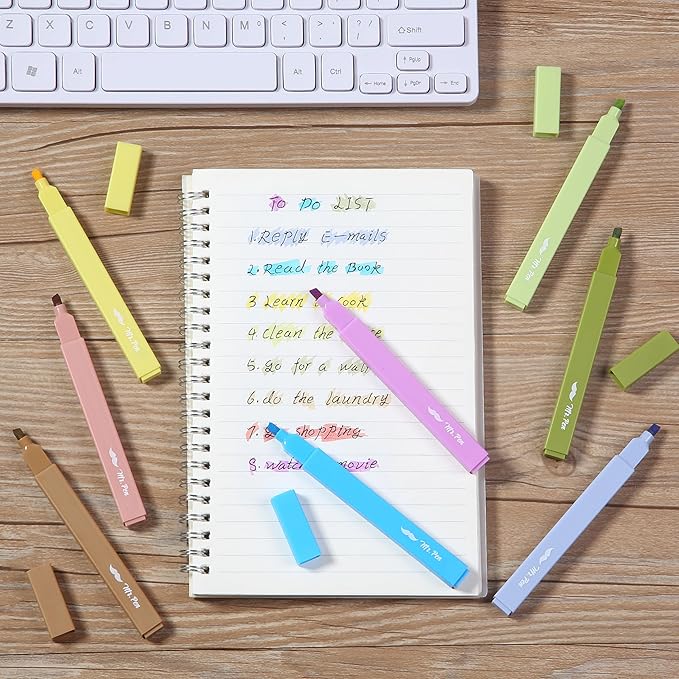 Z X C V B N M < > ? Shift
Alt Alt Ctrl Home PgUp PgDn End
To Do LIST
1. REPLY E-mails
2. Read the Book
3 Learn cook
4 Clean the
5. go for a walk
6. do the laundry
7. go shopping
8. watch movie
Mr. Pen
Mr. Pen
Mr. Pen
Mr. Pen
Mr. Pen
Mr. Pen
Mr. Pen
Mr. Pen